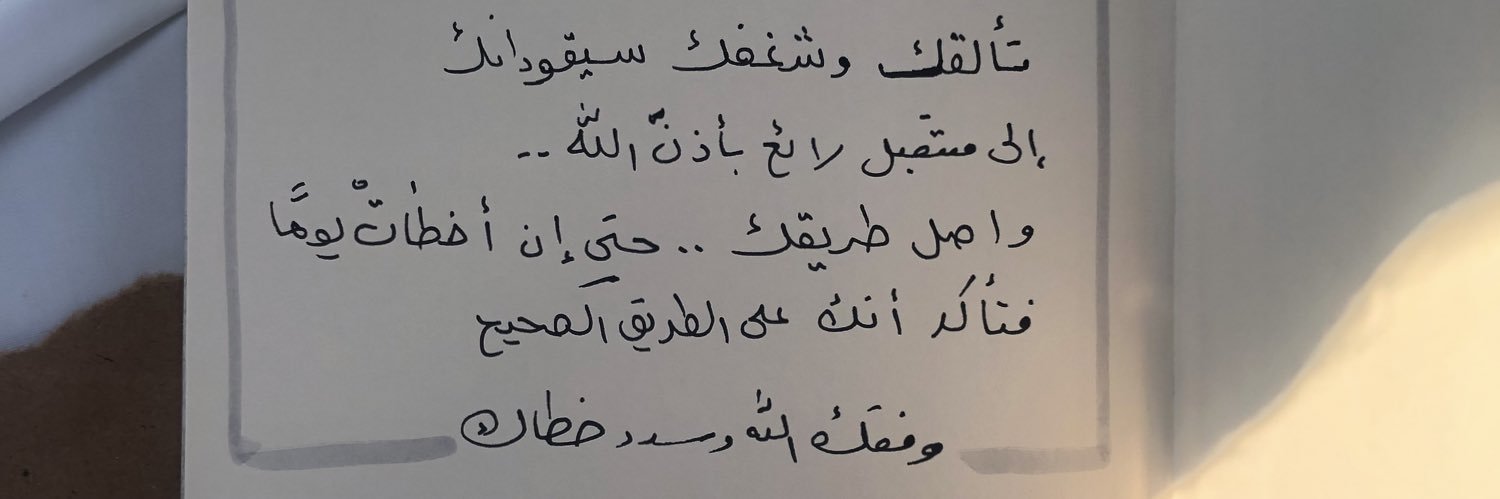 تألقك وشغفك سيقودانك
إلى مستقبل رائع بأذن الله ..
واصل طريقك .. حتى إن أخطأتْ يومًا
فتأكد أنك على الطريق الصحيح
وفقك الله وسدد خطاك